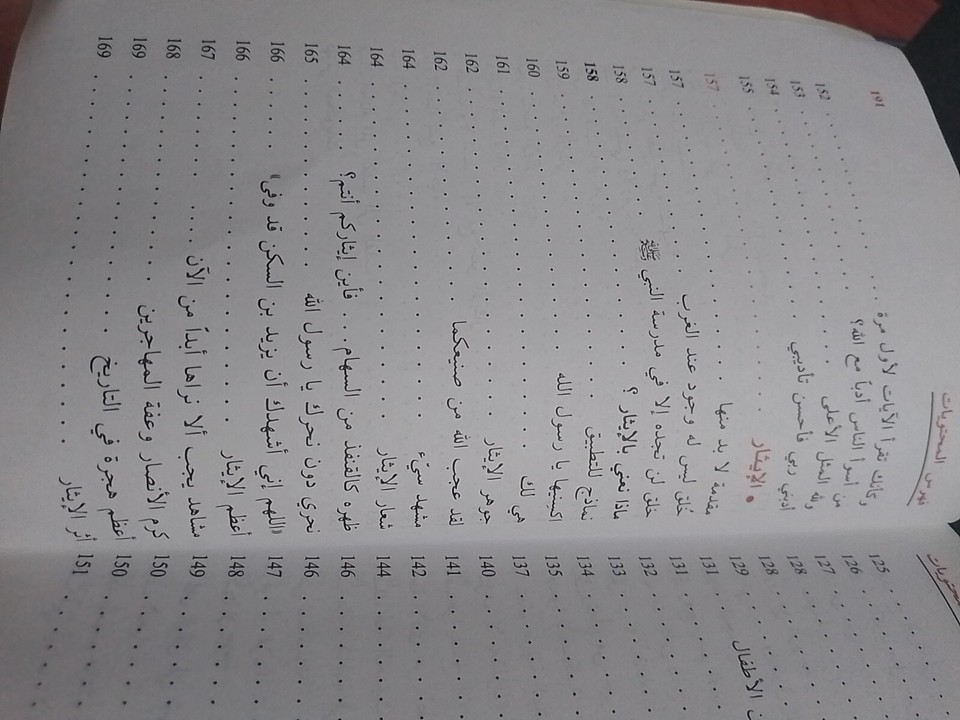 فهرس المحتويات 191
وكأنك تقرأ الآيات لأول مرة . . . 152
من أسوأ الناس أدباً مع الله؟ . . . 153
ولله المثل الأعلى . . . 154
أدبني ربي فأحسن تأديبي . . . 155
• الإيثار . . . 157
مقدمة لا بد منها . . . 157
خلق ليس له وجود عند الغرب . . . 157
خلق لن تجده إلا في مدرسة النبي ﷺ . . . 158
ماذا نعني بالإيثار ؟ . . . 158
نماذج للتطبيق . . . 159
اكسنيها يا رسول الله . . . 160
هي لك . . . 161
جوهر الإيثار . . . 162
لقد عجب الله من صنيعكما . . . 162
مشهد سيّئ . . . 164
شعار الإيثار . . . 164
ظهره كالقنفذ من السهام . . . فأين إيثاركم أنتم؟ . . . 164
نحري دون نحرك يا رسول الله . . . 165
«اللهم إني أشهدك أن يزيد بن السكن قد وفى» . . . 166
أعظم الإيثار . . . 166
مشاهد يجب ألا نراها أبداً من الآن . . . 167
كرم الأنصار وعفة المهاجرين . . . 168
أعظم هجرة في التاريخ . . . 169
أثر الإيثار . . . 169
125
126
127
128
128
الأطفال . . . 129
131
131
132
133
134
135
137
140
141
142
144
146
146
147
148
149
150
150
151